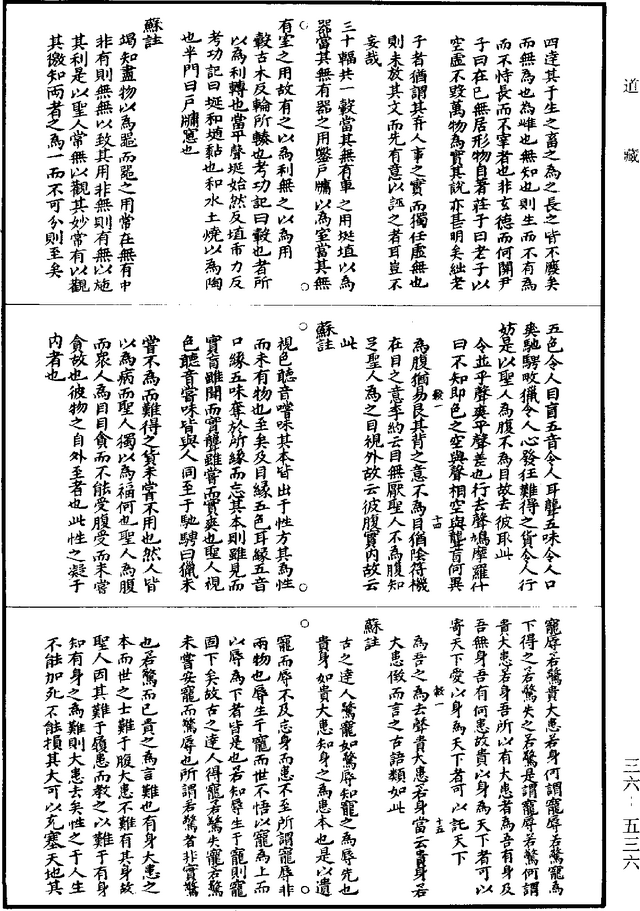 道藏
四達其于生之畜之為之長之皆不廢矣
而無為也為雌也無知也則生而不有為
而不恃長而不宰者也非玄德而何關尹
子曰在已無居形物自著莊子曰老子以
空虛不毀萬物為實其說亦甚明矣絀老
子者猶謂其弃人事之實而獨任虛無也
則未放其文而先有意以誣之者耳豈不
妄哉
三十輻共一轂當其無有車之用埏埴以為
器當其無有器之用鑿戶牖以為室當其無
有室之用故有之以為利無之以為用
轂古木反輪所轃也考功記曰轂也者所
以為利轉也當平聲埏始然反埴市力反
考功記曰埏和也埴黏也和水土燒以為陶
也半門曰戶牖窓也
蘇註
竭知盡物以為器而器之用常在無有中
非有則無無以致其用非無則有無以施
其利是以聖人常無以觀其妙常有以觀
其徼知兩者之為一而不可分則至矣
五色令人目盲五音令人耳聾五味令人口
爽馳騁畋獵令人心發狂難得之貨令人行
妨是以聖人為腹不為目故去彼取此
令並平聲爽平聲差也行去聲鳩摩羅什
曰不知即色之空與聲相空與聾盲何異
為腹猶易艮其背之意不為目猶陰符機
在目之意李約云目無厭聖人不為腹知
足聖人為之目視外故云彼腹實內故云
此
蘇註
視色聽音嚐味其本皆出于性方其為性
而未有物也至矣及目緣五色耳緣五音
口緣五味奪於所緣而忘其本則雖見而
實盲雖聞而實聾雖嘗而實爽也聖人視
色聽音嘗味皆與人同至于馳騁田獵未
嘗不為而難得之貨未嘗不用也然人皆
以為病而聖人獨以為福何也聖人為腹
而眾人為目目貪而不能受腹受而未嘗
貪故也彼物之自外至者也此性之凝于
內者也
寵辱若驚貴大患若身何謂寵辱若驚寵為
下得之若驚失之若驚是謂寵辱若驚何謂
貴大患若身吾所以有大患者為吾有身及
吾無身吾有何患故貴以身為天下者可以
寄天下愛以身為天下者可以託天下
為吾之為去聲貴大患若身當云貴身若
大患倣而言之古語類如此
蘇註
古之達人驚寵如驚辱知寵之為辱先也
貴身如貴大患知身之為患本也是以遺
寵而辱不及忘身而患不至所謂寵辱非
兩物也辱生于寵而世不悟以寵為上而
以辱為下者皆是也若知辱生于寵則寵
固下矣故古之達人得寵若驚失寵若驚
未嘗安寵而驚辱也所謂若驚者非實驚
也若驚而已貴之為言難也有身大患之
本而世之士難于腹大患不難有其身故
聖人因其難于履患而教之以難于有身
知有身之為難則大患去矣性之于人生
不能加死不能損其大可以充塞天地其
三六：五三六